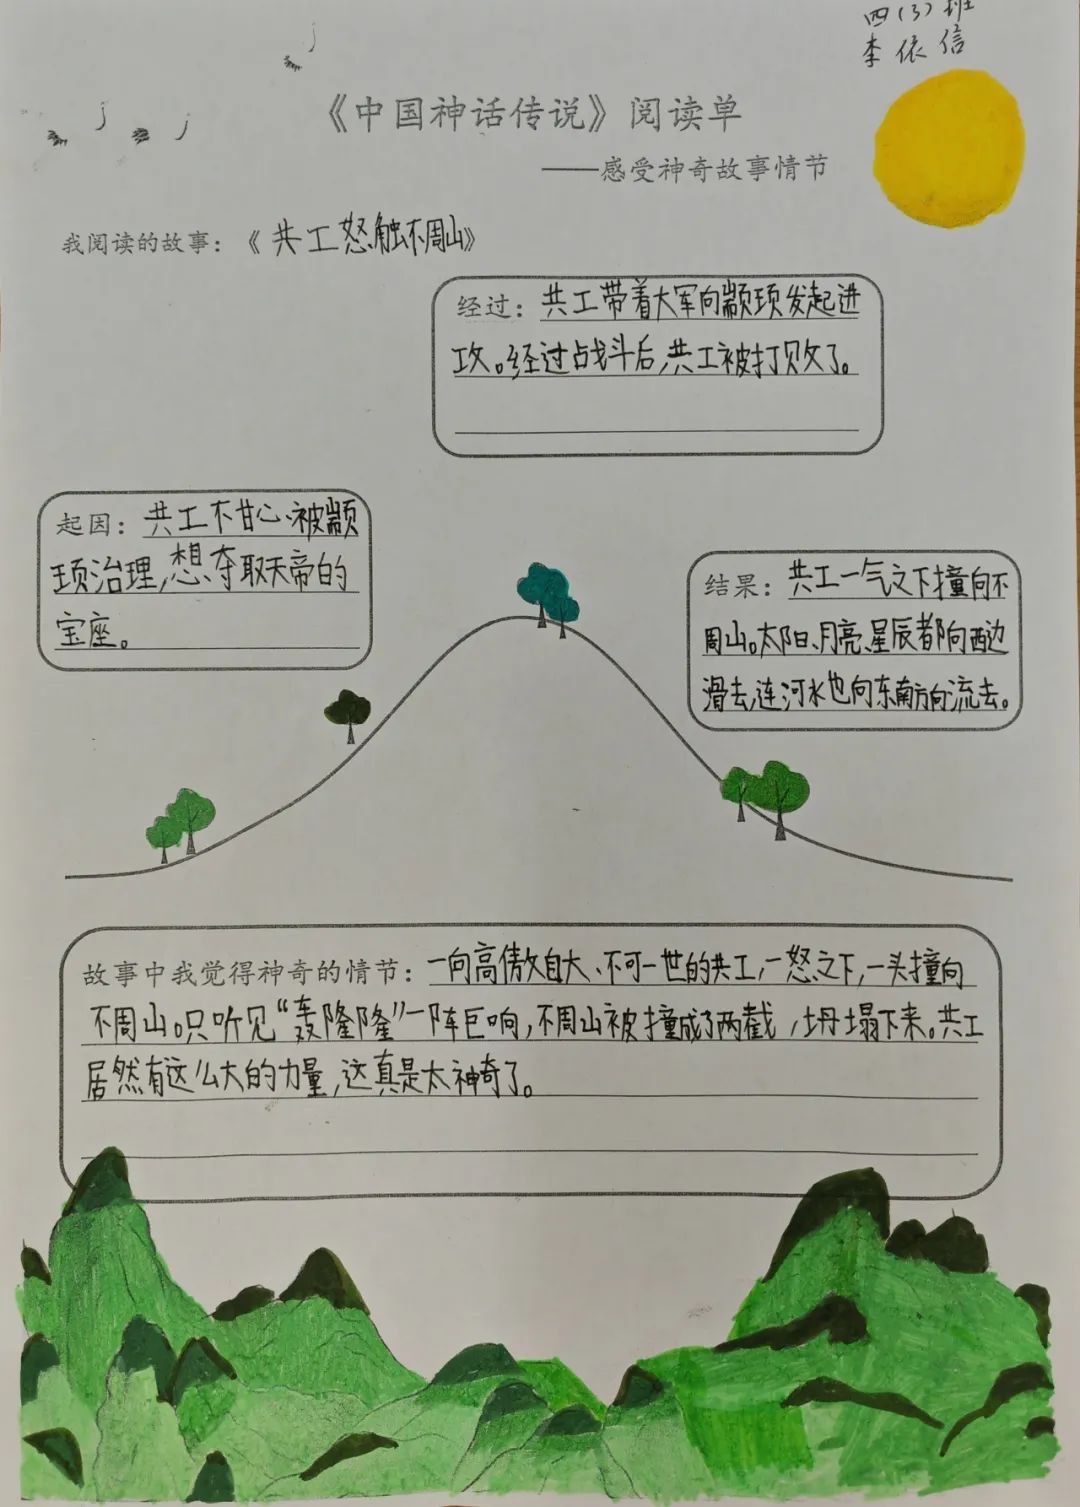 四（3）班
李依信
《中国神话传说》阅读单
——感受神奇故事情节
我阅读的故事：《共工怒触不周山》
经过：共工带着大军向颛顼发起进
攻。经过战斗后，共工被打败了。
起因：共工不甘心被颛
顼治理，想夺取天帝的
宝座。
结果：共工一气之下撞向不
周山。太阳、月亮、星辰都向西边
滑去，连河水也向东南方向流去。
故事中我觉得神奇的情节：一向高傲自大、不可一世的共工，一怒之下，一头撞向
不周山。只听见“轰隆隆”一阵巨响，不周山被撞成了两截，坍塌下来。共工
居然有这么大的力量，这真是太神奇了。